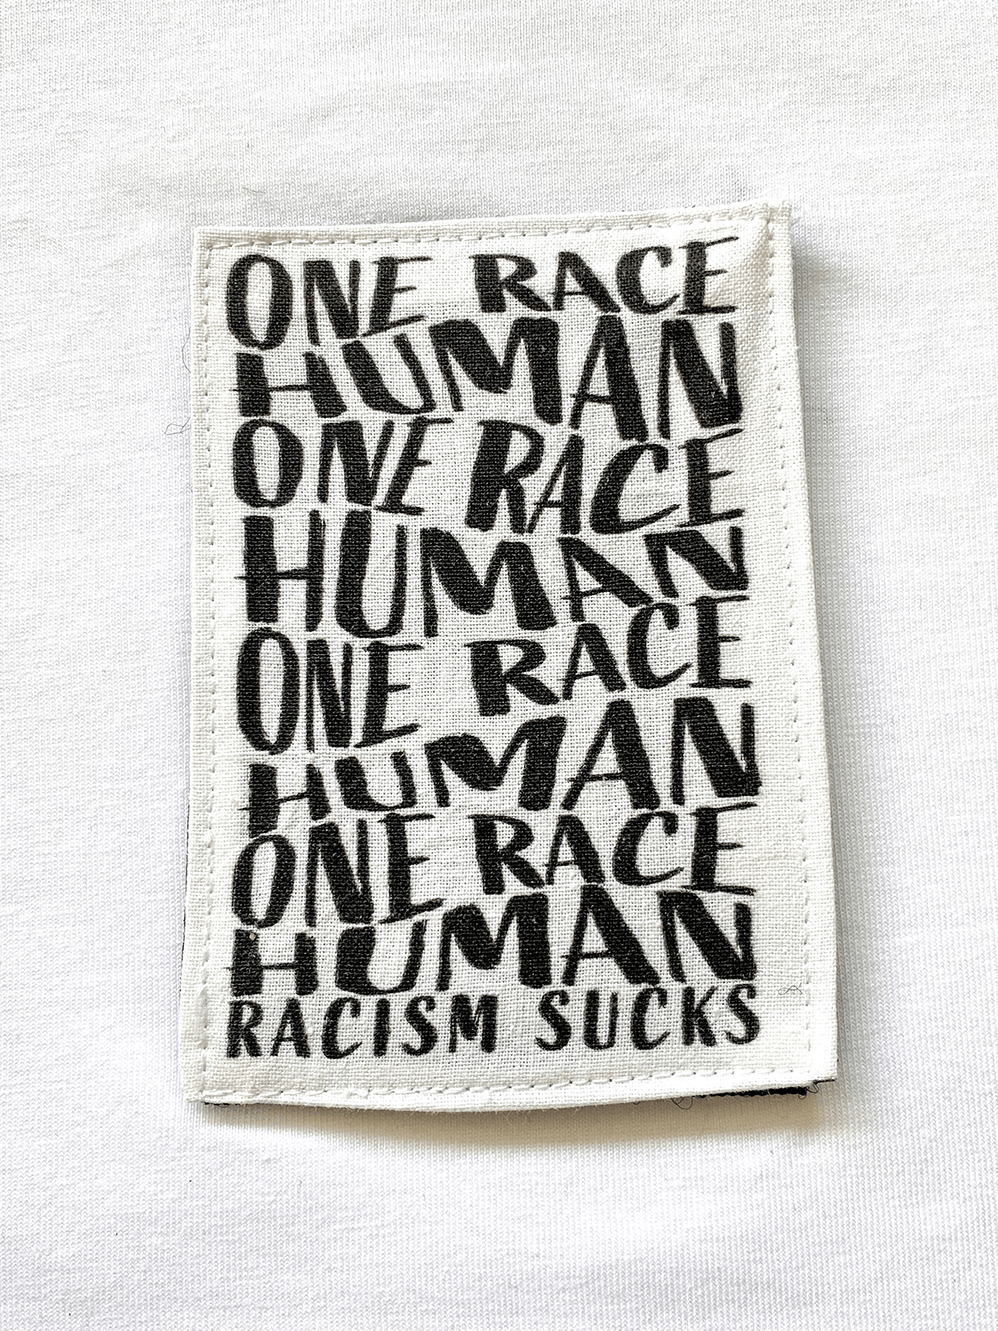 ONE RACE
HUMAN
ONE RACE
HUMAN
ONE RACE
HUMAN
ONE RACE
HUMAN
RACISM SUCKS